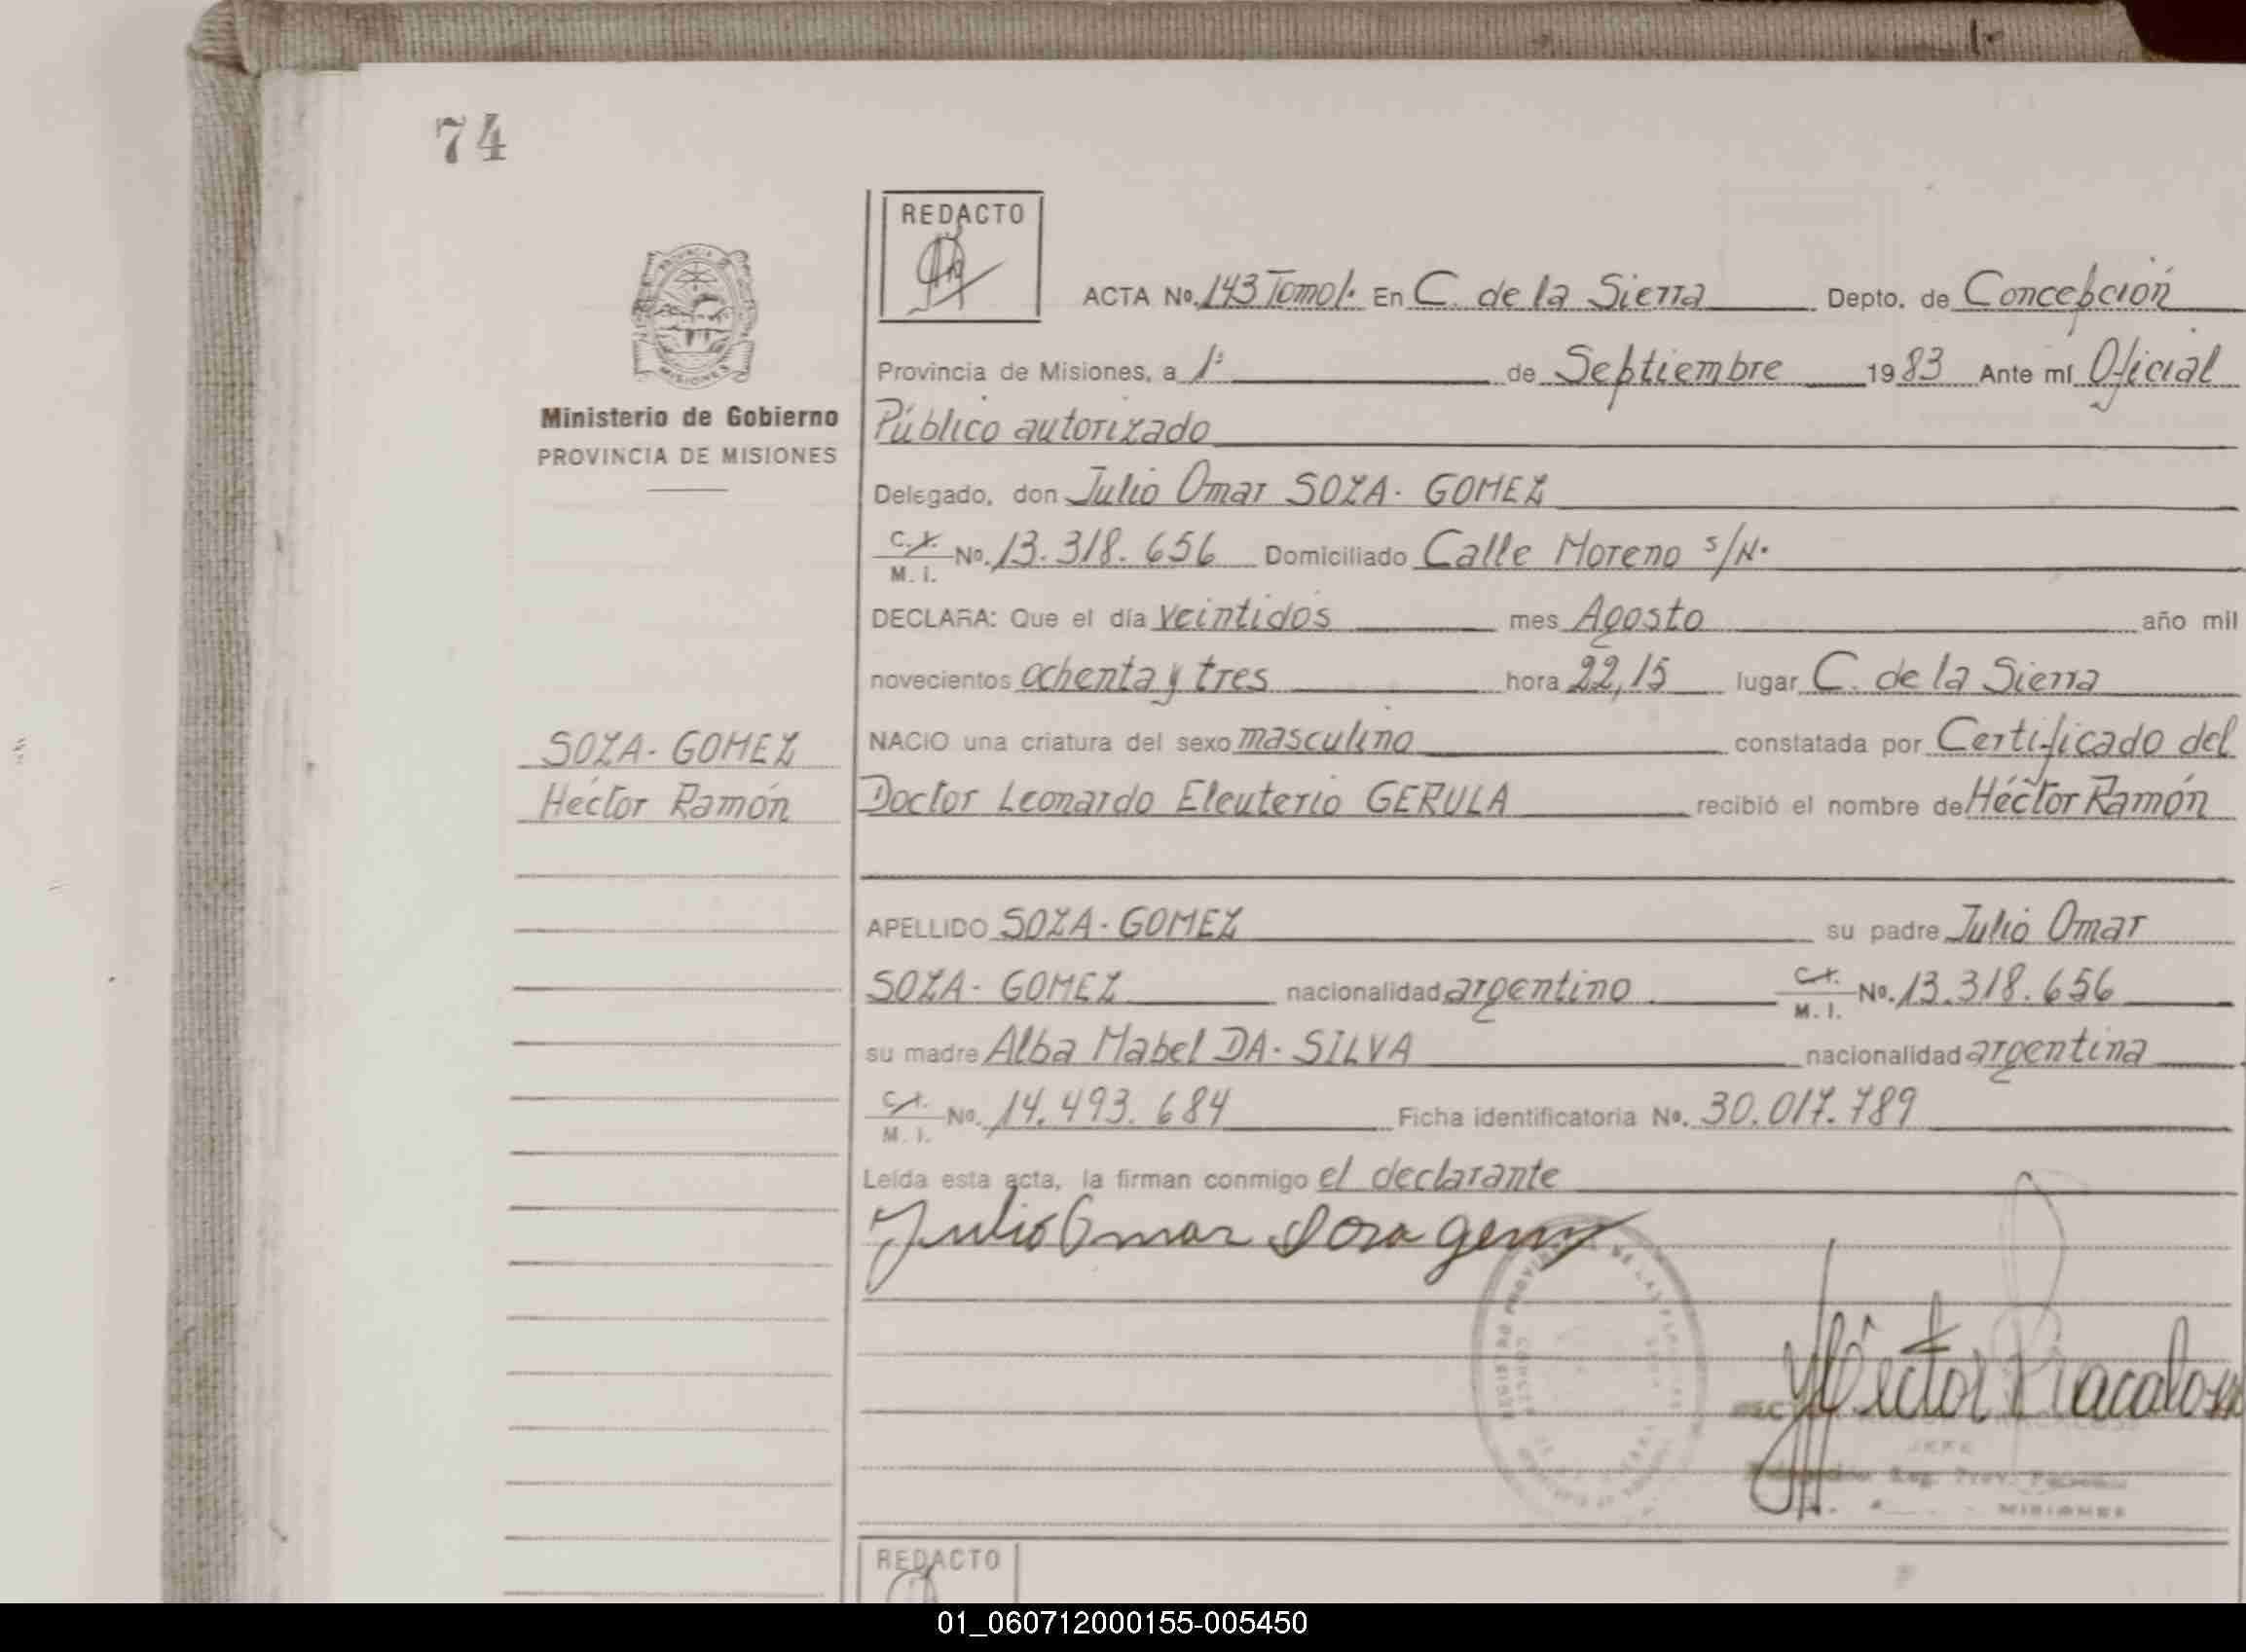 74
REDACTO
ACTA No. 143 Tomo 1. En C. de la Sierra Depto. de Concepción
Provincia de Misiones, a 1° de Septiembre 1983 Ante mí Oficial
Ministerio de Gobierno
PROVINCIA DE MISIONES
Público autorizado
Delegado, don Julio Omar SOZA - GOMEZ
C.I. M.I. No. 13.318.656 Domiciliado Calle Moreno s/N.
DECLARA: Que el día veintidós mes Agosto año mil
novecientos ochenta y tres hora 22,15 lugar C. de la Sierra
SOZA - GOMEZ
Héctor Ramón
NACIO una criatura del sexo masculino constatada por Certificado del
Doctor Leonardo Eleuterio GERULA recibió el nombre de Héctor Ramón
APELLIDO SOZA - GOMEZ su padre Julio Omar
SOZA - GOMEZ nacionalidad argentino C.I. M.I. No. 13.318.656
su madre Alba Mabel DA - SILVA nacionalidad argentina
C.I. M.I. No. 14.493.684 Ficha identificatoria No. 30.017.789
Leída esta acta, la firman conmigo el declarante
Julio Omar Soza Gomez
Héctor
JEFE
MISIONES
REDACTO
01_060712000155-005450